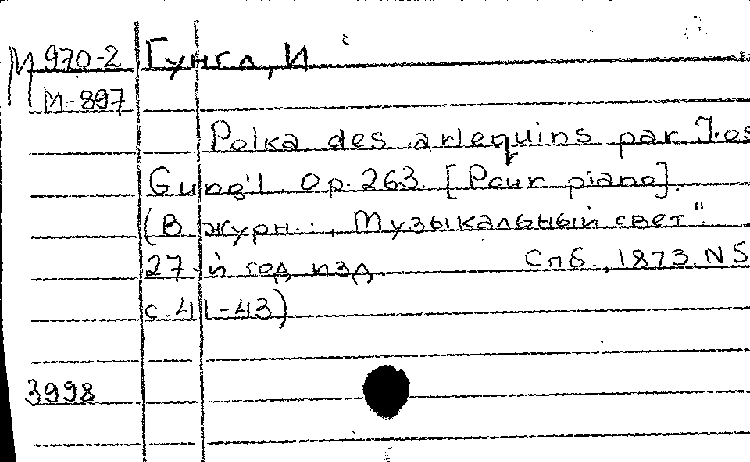 М 970-2 Гунгл, И
М-897
Polka des arlequins par Jos
Gung'l. Op. 263 [Pour piano].
(В журн.: „Музыкальный свет".
27-й год изд. Спб., 1873. N5
с. 41-43)
3998